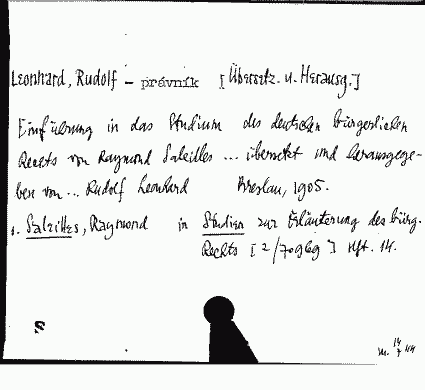 Leonhard, Rudolf – právník [Übersetz. u. Herausg.]
Einführung in das Studium des deutschen bürgerlichen
Rechts von Raymond Saleilles ... übersetzt und herausgege-
ben von ... Rudolf Leonhard Breslau, 1905.
1. Saleilles, Raymond in Studien zur Erläuterung des bürg.
Rechts [2/70969] Hft. 14.
S